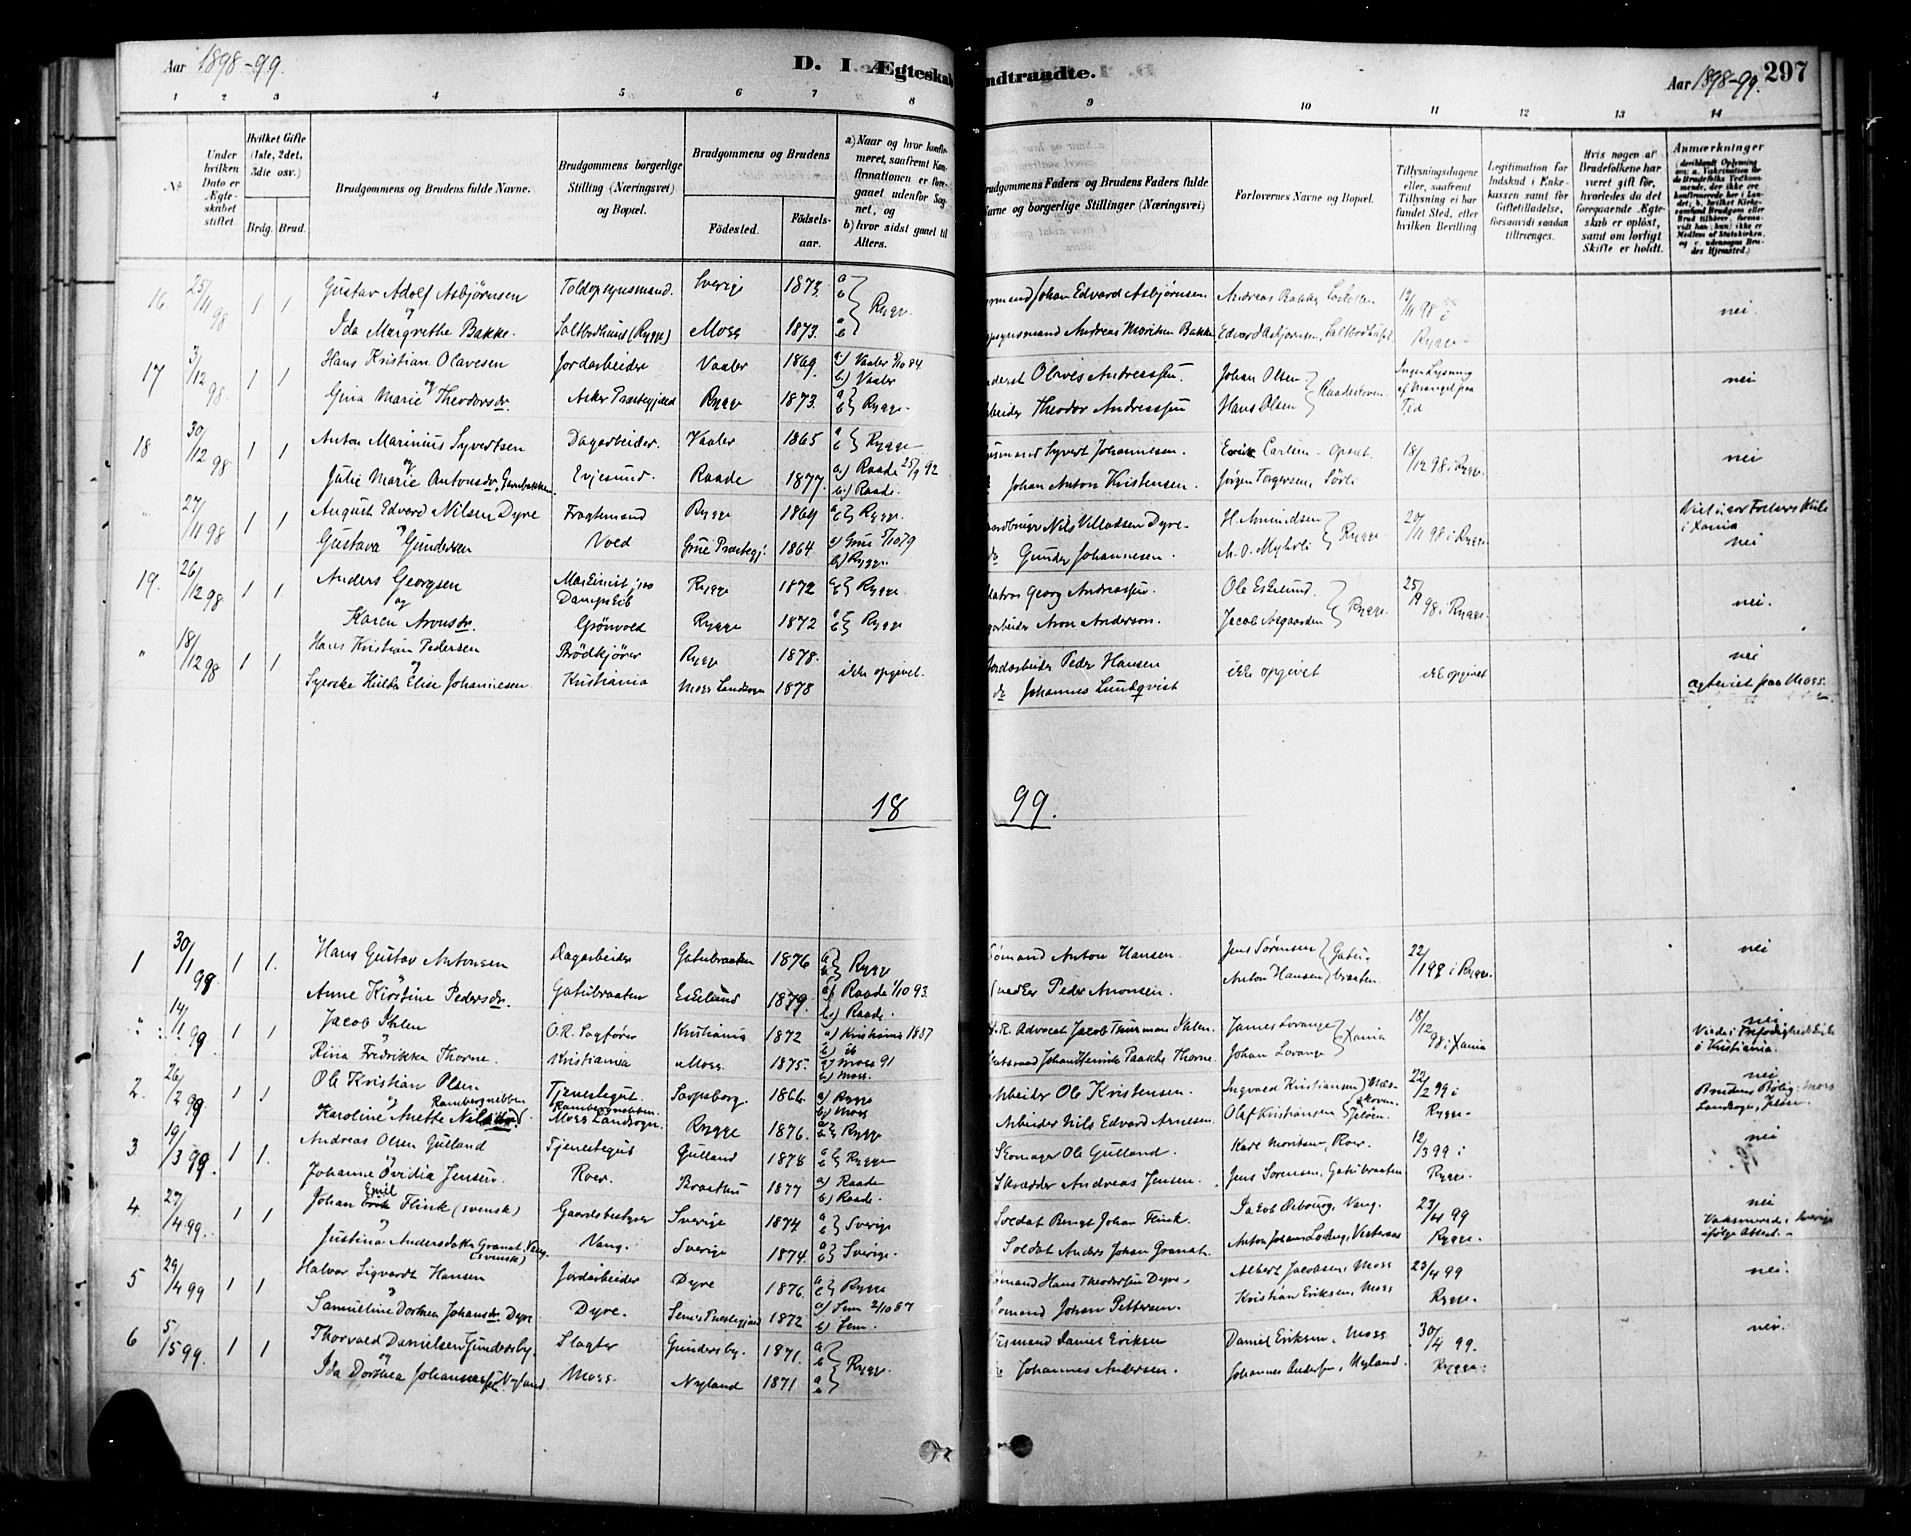 Aar 1898-99.
D. I. Ægteskab
indtraadte.
Aar 1898-99. 297
1 2 3 4 5 6 7 8 9 10 11 12 13 14
No
Under hvilken Dato er Ægteskabet stiftet.
Hvilket Gifte (1ste, 2det, 3die osv.)
Brdg. Brud.
Brudgommens og Brudens fulde Navne.
Brudgommens borgerlige Stilling (Næringsvei) og Bopæl.
Brudgommens og Brudens
Födested. Födsels-aar.
a) Naar og hvor konfirmeret, saafremt Konfirmationen er foregaaet udenfor Sognet, og
b) hvor sidst gaaet til Alters.
Brudgommens Faders og Brudens Faders fulde Navne og borgerlige Stillinger (Næringsvei)
Forlovernes Navne og Bopæl.
Tillysningsdagene eller, saafremt Tillysning ei har fundet Sted, efter hvilken Bevilling
Legitimation for Indskud i Enkekassen samt for Giftetilladelse, forsaavidt saadan tiltrænges.
Hvis nogen af Brudefolkene har været gift för, hvorledes da det foregaaende Ægteskab er oplöst, samt om lovligt Skifte er holdt.
Anmærkninger
16 25/11 98 1 1 Gustav Adolf Asbjørnsen Toldopsynsmand. Sverige 1873. a b Rygge. Johan Edvard Asbjørnsen Andreas Bakke 98 i nei.
og
Ida Margrethe Bakke. Saltbodlund (Rygge) Moss 1873. a b Andreas Moritsen Bakke Edvard Asbjørnsen, Rygge.
17 3/12 98 1 1 Hans Kristian Olavesen Jordarbeider Vaaler 1869. a) Vaaler 5/10 84 b) Vaaler Olaves Andreassen. Johan Olsen Ingen Lysning af Mangel paa Tid nei
og
Gina Marie Theodorsdr. Asker Præstegjeld Rygge 1873. a b Rygge. Theodor Andreassen Hans Olsen
18 30/12 98 1 1 Anton Marinius Syvertsen Dagarbeider. Vaaler 1865 a b Rygge Syvert Johannesen. Carlsen 18/12 98 i Rygge nei
og
Julie Marie Antonsdr., Evjesund. Raade 1877. a) Raade 25/9 92 b) Raade. Johan Anton Kristensen. Jørgen Torgersen, Sörli
" 27/11 98 1 1 August Edvard Nilsen Dyre Fragtemand Rygge 1869 a b Rygge. Nils Villadsen Dyre H. Amundsen Rygge 20/11 98 i Rygge. Viet i vor Frelsers Kirke i Xania
og
Gustava Gundersen Voed Grue Præstegj. 1864. a) Grue 5/10 79 b) Rygge Gunder Johannesen. M. O. Myhrli nei
19. 26/12 98 1 1. Anders Georgsen Maskinist paa Dampskib Rygge 1872 a b Rygge. Matros Georg Andreassen. Ole Eskelund Rygge 25/ 98 i Rygge. nei.
og
Karen Aronsdr. Grönvold Rygge 1872 a b Rygge Aron Anderson. Jacob Aagaarden
" 18/12 98 1 1 Hans Kristian Pedersen Brödkjörer Rygge 1878. ikke opgivet. Jordarbeider Peder Hansen ikke opgivet ikke opgivet nei
og
Syerske Hulda Elise Johannesen. Kristiania Moss Landsogn 1878 do Johannes Lundqvist ægteviet paa Moss.
18 99.
1 30/1 99 1 1. Hans Gustav Antonsen Dagarbeider Gatubraaten 1876 a b Rygge Sömand Anton Hansen. Jens Sørensen Gatubraaten. 22/1 98 i Rygge. nei
Anne Kirstine Pedersdr. Gatubraaten Eskelund 1879. a) Raade 1/10 93. b) Raade. Peder Aronsen. Anton Hansen
" 14/1 99 1 1 Jacob Ihlen O.R. Sagfører Kristiania 1872 a) Kristiania 1887 b) do H.R. Advocat Jacob Thurman Ihlen. James Lorange Xania 18/12 98 i Xania nei
Rina Fredrikka Thorne. Kristiania Moss. 1875. a) Moss 91 b) Moss. Johan Henrik Paaske Thorne Johan Lorange Viede i Trefoldigheds Kirke i Kristiania.
2. 26/2 99 1 1 Ole Kristian Olsen Tjenestegut. Sarpsborg. 1866. a) Rygge b) Moss Arbeider Ole Kristensen. Ingvald Kristiansen 22/2 99 i Rygge. nei
og Rambergnebben
Karoline Anette Nilsdr. Rambergnebben. Moss Landsogn. Rygge 1876. a b Rygge Arbeider Nils Edvard Arnesen. Olaf Kristiansen Jeløen Brudens Bolig: Moss Landsogn, Jeløen
3 19/3 99. 1 1. Andreas Olsen Gulland Tjenestegut Gulland 1878 a b Rygge Skomager Ole Gulland. Karl Moritsen, Roer. 12/3 99 i Rygge. nei
Johanne Ovidia Jensen. Roer. Braaten 1877 a) Raade b) Raade. Skrædder Andreas Jensen. Jens Sørensen, Gatubraaten
4. 27/4 99. 1 1 Johan Emil Flink (svensk) Gaardsbestyrer Sverige 1874 a b Sverige Soldat Bengt Johan Flink. Vang. 23/4 99 Rygge. nei
"
Justina Andersdatter Granat, Vang. (svensk) Vang. Sverige 1874. a b Sverige. Soldat Anders Johan Granat. Vaksineret i Sverige ifølge Attest.
5 29/4 99 1 1 Halvor Sigvardt Hansen Jordarbeider Dyre 1876. a b Rygge Sömand Hans Theodorsen Dyre. Albert Jacobsen, Moss 23/4 99 Rygge. nei.
"
Samueline Dorthea Johansdr. Dyre Dyre. Sems Præstegjeld 1872 a) Sem 2/10 87 b) Sem. Sömand Johan Pettersen. Kristian Eriksen, Moss
6 5/5 99. 1 1 Thorvald Danielsen Gundersby. Slagter Gundersby. 1871. a b Rygge. Husmand Daniel Eriksen Daniel Eriksen, Moss 30/4 99. Rygge. nei.
og
Ida Dorthea Johannessen Nyland. Moss. Nyland 1871 a b Johannes Andersen. Johannes Andersen, Nyland.